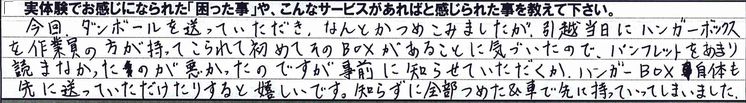 実体験でお感じになられた「困った事」や、こんなサービスがあればと感じられた事を教えて下さい。
今回、ダンボールを送っていただき、なんとかつめこみましたが、引越当日にハンガーボックス
を作業員の方が持ってこられて初めてそのBOXがあることに気づいたので、パンフレットをあまり
読まなかったのが悪かったのですが事前に知らせていただくか、ハンガーBOX自体も
先に送っていただけたりすると嬉しいです。知らずに全部つめた&車で先に持っていってしまいました。